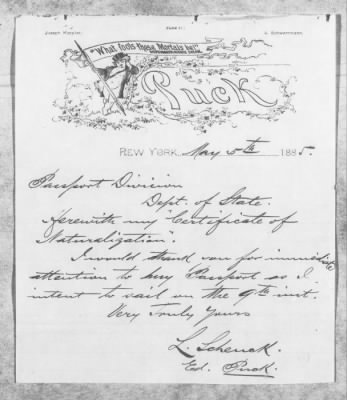 Joseph Keppler. A. Schwarzmann.
"What fools these Mortals be!"
Puck
NEW YORK, May 5th 1885.
Passport Division
Dept. of State.
Herewith my "Certificate of
Naturalization".
I would thank you for immediate
attention to my Passport as I
intent to sail on the 9th inst.
Very Truly Yours
L. Schenck.
Ed. Puck.